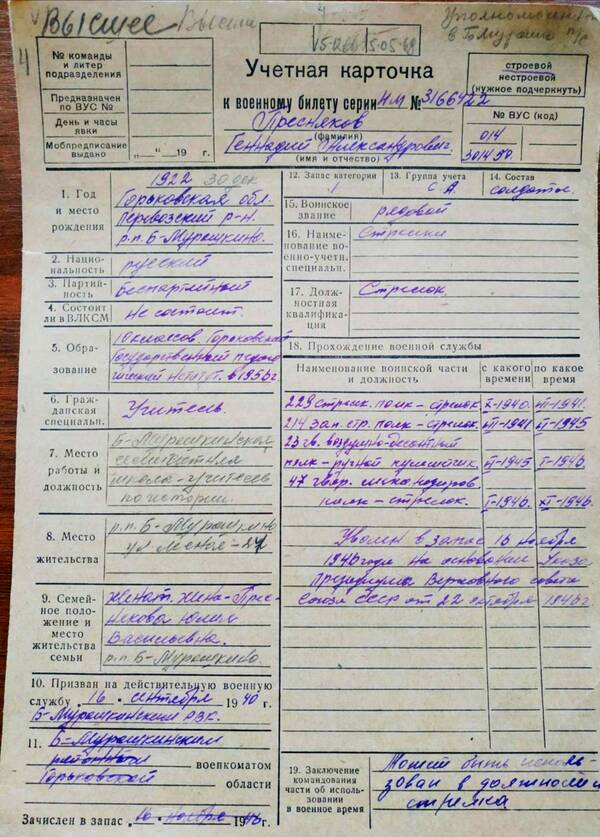 Высшее Высшее
4
в Б Мурашк
4
№ команды
и литер
подразделения
Предназначен
по ВУС №
День и часы
явки
Мобпредписание
выдано „ “ 19 г.
Учетная карточка
к военному билету серии НМ № 3166422
Пресняков
(фамилия)
Геннадий Александрович
(имя и отчество)
строевой
нестроевой
(нужное подчеркнуть)
№ ВУС (код)
014
301450.
1. Год
и место
рождения
1922 30 дек
Горьковская обл.
Перевозский р-н.
р.п. Б-Мурашкино.
2. Нацио-
нальность
русский
3. Партий-
ность
Беспартийный
4. Состоит
ли в ВЛКСМ
Не состоит.
5. Обра-
зование
10 классов. Горьковский
Государственный педаго
в 1956 г.
6. Граж-
данская
специальн.
Учитель.
7. Место
работы и
должность
Б-Мурашкинская
школа-учитель
по истории.
8. Место
жительства
р.п. Б-Мурашкино
ул
9. Семей-
ное поло-
жение и
место
жительства
семьи
Женат. Жена-Прес-
някова Юлия
Васильевна.
р.п. Б-Мурашкино.
10. Призван на действительную военную
службу „16“ сентября 1940 г.
Б-Мурашкинским РВК.
11. Б-Мурашкинским
районным военкоматом
Горьковской области
Зачислен в запас „16“ ноября 1946 г.
12. Запас категории
1
13. Группа учета
С.А.
14. Состав
солдаты.
15. Воинское
звание
рядовой
16. Наиме-
нование во-
енно-учетн.
специальн.
Стрелки
17. Долж-
ностная
квалифика-
ция
Стрелок.
18. Прохождение военной службы
Наименование воинской части
и должность
с какого
времени
по какое
время
229 стрелк. полк - стрелок. X-1940. VII-1941.
214 зап. стр. полк - стрелок. VII-1941 VI-1945
23 гв. воздушно-десантный
полк - ручной пулеметчик. VI-1945 I-1946.
47 гвар.
полк - стрелок. I-1946. XI-1946.
Уволен в запас 16 ноября
1946 года на основании Указа
Президиума Верховного совета
Союза ССР от 22 октября 1946 г
19. Заключение
командования
части об исполь-
зовании
в военное время
Может быть исполь-
зован в должности
стрелка.